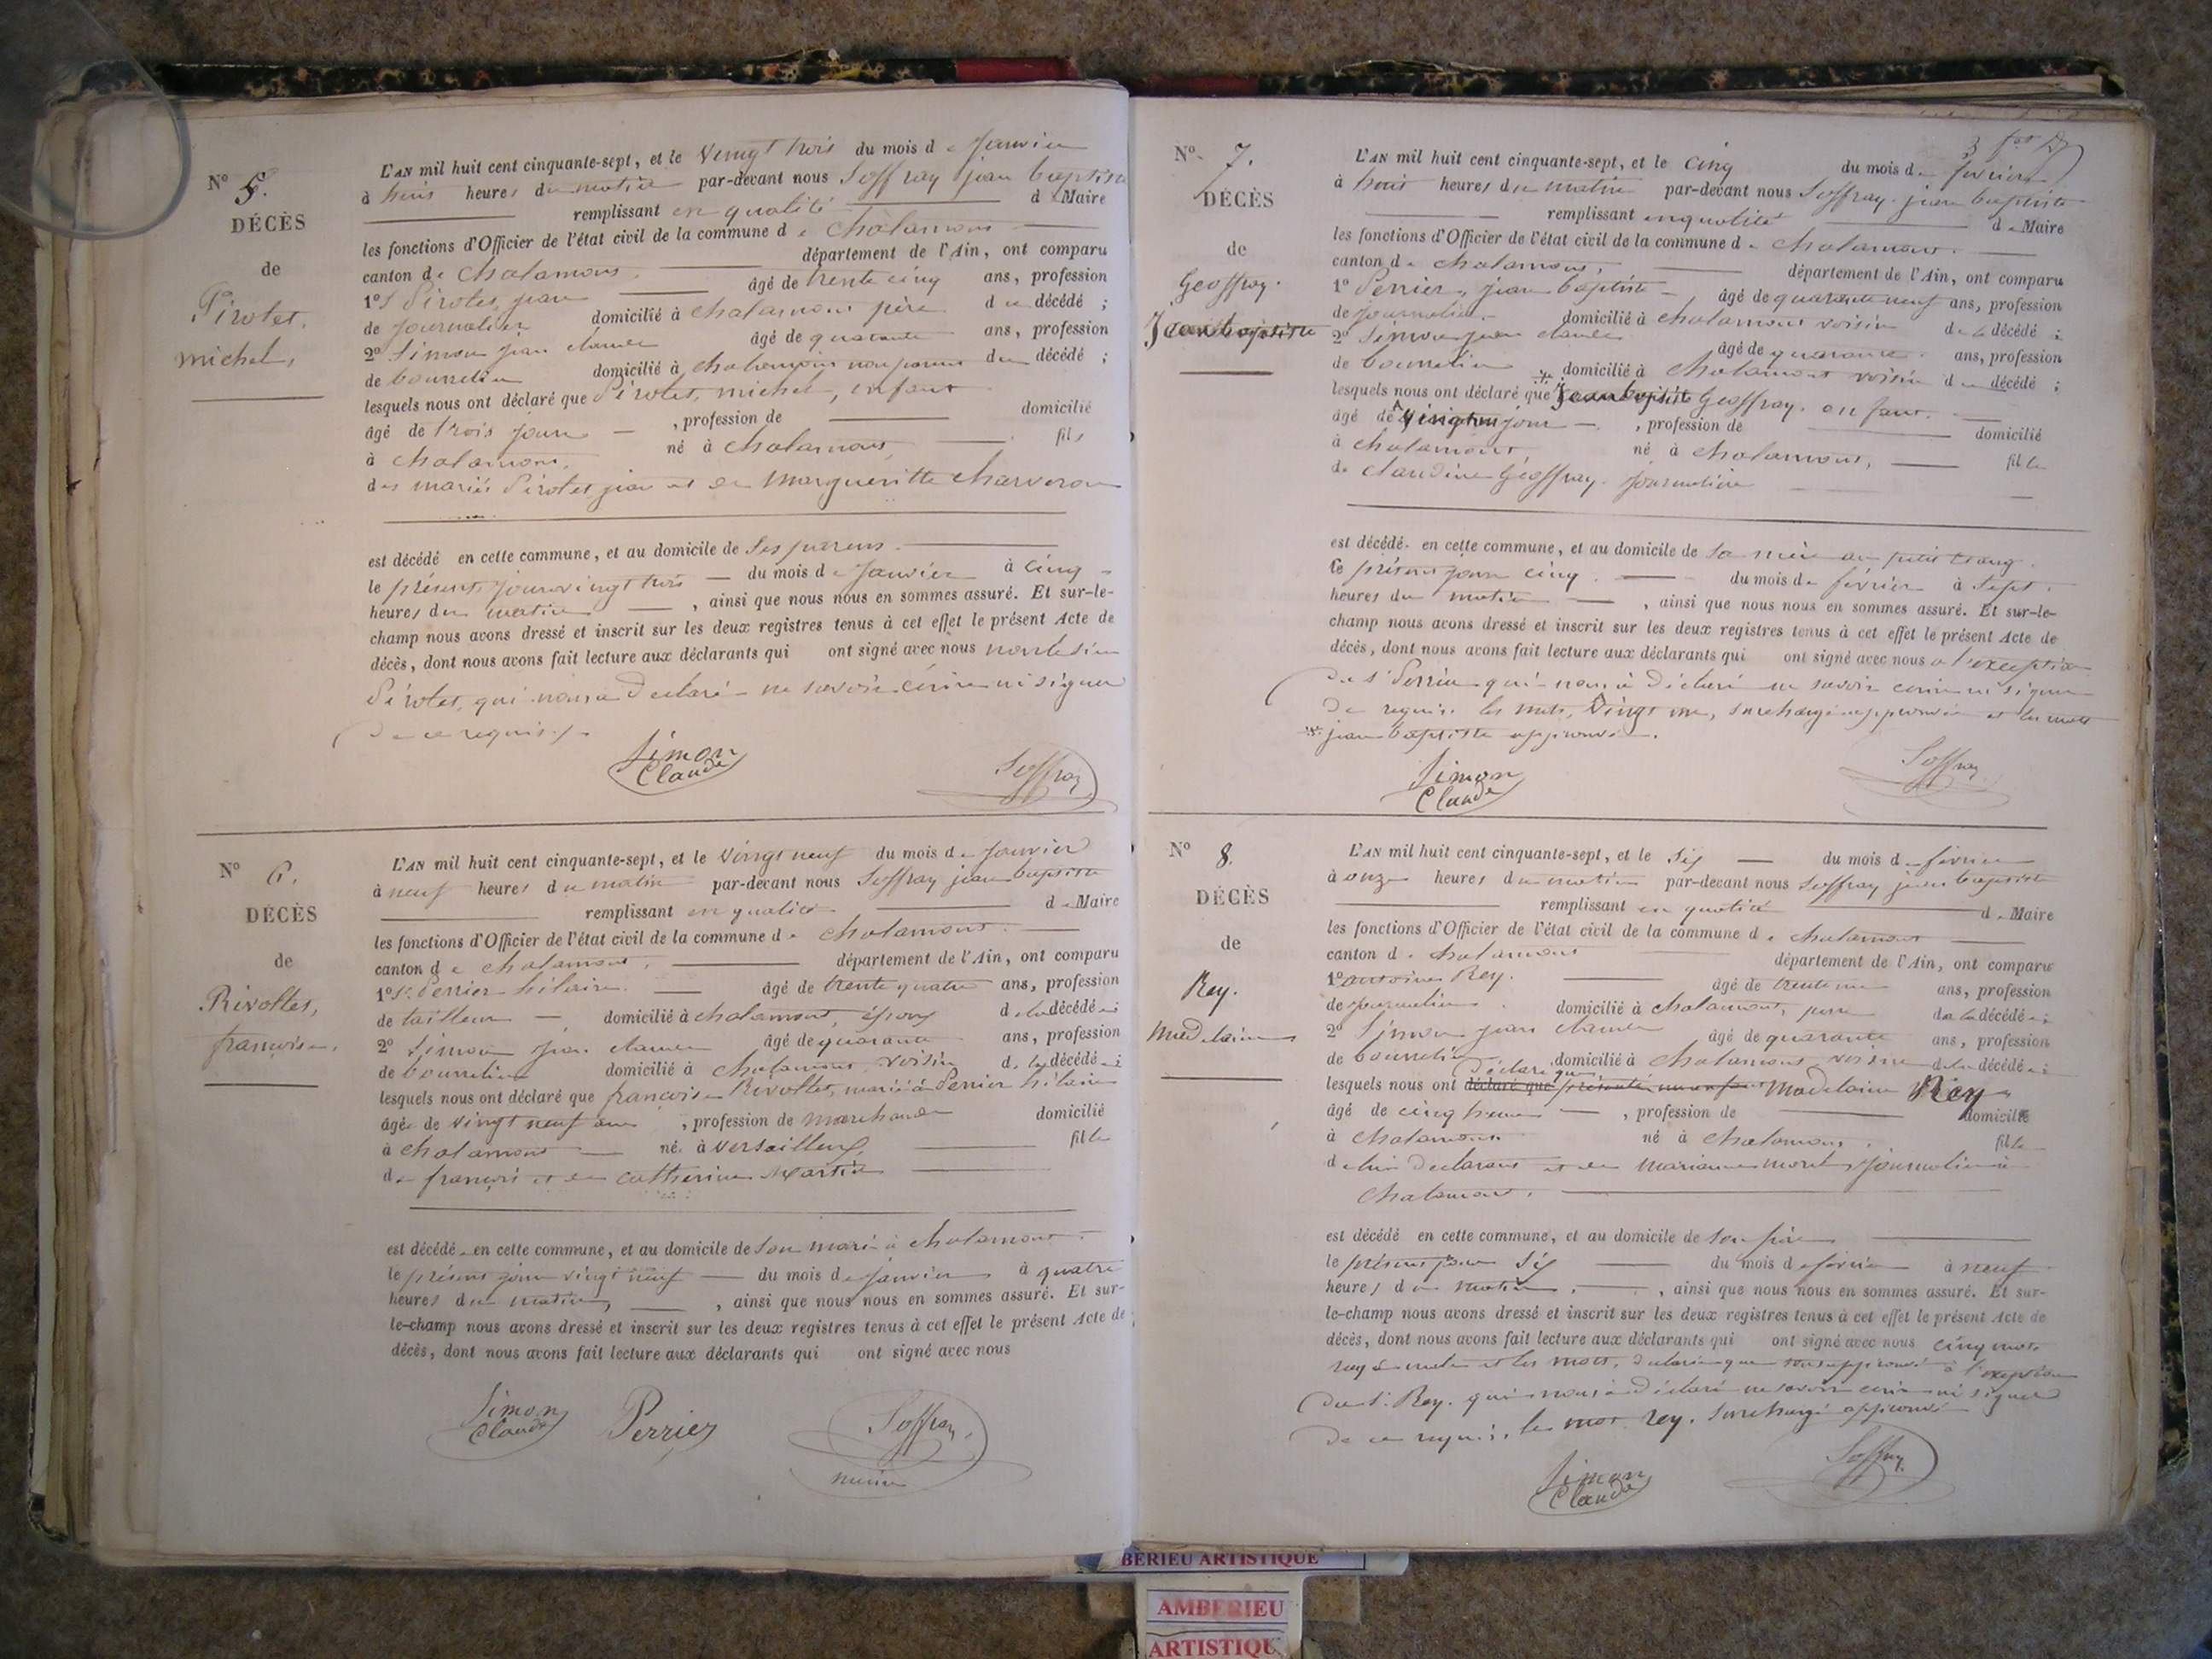 N° 5.
DÉCÈS
de
Pirolet,
michel,
L'AN mil huit cent cinquante-sept, et le Vingt trois du mois de Janvier
à huit heures du matin par-devant nous Soffray jean baptiste
remplissant en qualité de Maire
les fonctions d'Officier de l'état civil de la commune de Chalamont
canton de Chalamont, département de l'Ain, ont comparu
1° S. Pirolet, jean âgé de trente cinq ans, profession
de journalier domicilié à Chalamont père du décédé ;
2° Simon jean claude âgé de quarante ans, profession
de bourrelier domicilié à Chalamont non parent du décédé ;
lesquels nous ont déclaré que Pirolet, michel, enfant
âgé de trois jours , profession de domicilié
à Chalamont, né à Chalamont, fils
des mariés Pirolet jean et de Margueritte Charveron
est décédé en cette commune, et au domicile de Ses parens
le présent jour vingt trois du mois de Janvier à cinq
heures du matin , ainsi que nous nous en sommes assuré. Et sur-le-
champ nous avons dressé et inscrit sur les deux registres tenus à cet effet le présent Acte de
décès, dont nous avons fait lecture aux déclarants qui ont signé avec nous non le sieur
Pirolet, qui nous a déclaré ne savoir écrire ni signer
de ce requis
Simon
Claude
Soffray
N° 6.
DÉCÈS
de
Rivollet,
françoise,
L'AN mil huit cent cinquante-sept, et le Vingt neuf du mois de Janvier
à neuf heures du matin par-devant nous Soffray jean baptiste
remplissant en qualité de Maire
les fonctions d'Officier de l'état civil de la commune de Chalamont
canton de Chalamont, département de l'Ain, ont comparu
1° S. Perrier hilaire âgé de trente quatre ans, profession
de tailleur domicilié à Chalamont, époux de la décédée ;
2° Simon jean claude âgé de quarante ans, profession
de bourrelier domicilié à Chalamont voisin de la décédée ;
lesquels nous ont déclaré que françoise Rivollet, mariée à Perrier hilaire
âgée de vingt neuf ans , profession de marchande domicilié
à Chalamont née à Versailleux, fille
de françois et de Catherine Martin
est décédée en cette commune, et au domicile de Son mari à Chalamont
le présent jour vingt neuf du mois de Janvier à quatre
heures du matin, , ainsi que nous nous en sommes assuré. Et sur-
le-champ nous avons dressé et inscrit sur les deux registres tenus à cet effet le présent Acte de
décès, dont nous avons fait lecture aux déclarants qui ont signé avec nous
Simon
Claude
Perrier
Soffray
N° 7.
DÉCÈS
de
Geoffray.
Jean baptiste
L'AN mil huit cent cinquante-sept, et le cinq du mois de février
à huit heures du matin par-devant nous Soffray jean baptiste
remplissant en qualité de Maire
les fonctions d'Officier de l'état civil de la commune de Chalamont.
canton de Chalamont, département de l'Ain, ont comparu
1° Perrier, jean baptiste âgé de quarante neuf ans, profession
de journalier domicilié à Chalamont voisin de la décédé ;
2° Simon jean claude âgé de quarante ans, profession
de bourrelier domicilié à Chalamont voisin du décédé ;
lesquels nous ont déclaré que Jean baptiste Geoffray. enfant.
âgé de Vingt un jour , profession de domicilié
à Chalamont, né à Chalamont, fille
de Claudine Geoffray. journalière
est décédé en cette commune, et au domicile de sa mère au petit Etang
le présent jour cinq. du mois de février à Sept.
heures du matin , ainsi que nous nous en sommes assuré. Et sur-le-
champ nous avons dressé et inscrit sur les deux registres tenus à cet effet le présent Acte de
décès, dont nous avons fait lecture aux déclarants qui ont signé avec nous à l'exception
du s. Perrier qui nous a déclaré ne savoir écrire ni signer
de requis. les mots, Vingt un, surchargé approuvé et les mots
jean baptiste approuvé.
Simon
Claude
Soffray
N° 8.
DÉCÈS
de
Rey.
Madelaine
L'AN mil huit cent cinquante-sept, et le Six du mois de février
à onze heures du matin par-devant nous Soffray jean baptiste
remplissant en qualité de Maire
les fonctions d'Officier de l'état civil de la commune de Chalamont
canton de Chalamont département de l'Ain, ont comparu
1° antoine Rey. âgé de trente un ans, profession
de journalier domicilié à Chalamont, père de la décédée ;
2° Simon jean claude âgé de quarante ans, profession
de bourrelier domicilié à Chalamont voisin de la décédée ;
déclaré que
lesquels nous ont déclaré que présenté un enfant Madelaine Rey
âgé de cinq heures , profession de domicilié
à Chalamont né à Chalamont, fille
de lui déclarant et de Marianne Morel journalière à
Chalamont.
est décédé en cette commune, et au domicile de Son père
le présent jour Six du mois de février à neuf
heures du matin. , ainsi que nous nous en sommes assuré. Et sur-
le-champ nous avons dressé et inscrit sur les deux registres tenus à cet effet le présent Acte de
décès, dont nous avons fait lecture aux déclarants qui ont signé avec nous cinq mots
rayés nuls et les mots, déclaré que sont approuvé à l'exception
du S. Rey. qui nous a déclaré ne savoir écrire ni signer
de ce requis, le mot rey. surchargé approuvé
Simon
Claude
Soffray
BERIEU ARTISTIQUE
AMBERIEU
ARTISTIQU